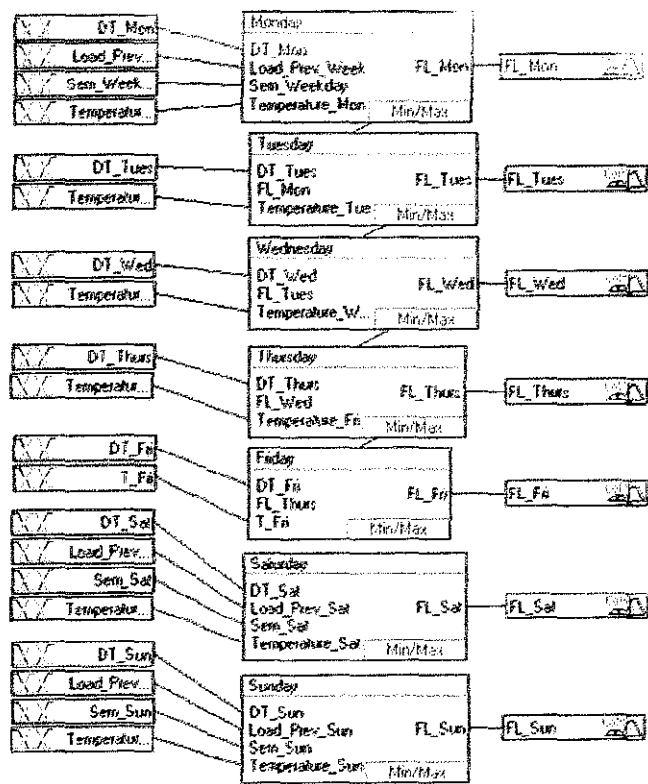 DT_Mon
Load_Prev...
Sem_Week...
Temperatur...
Monday
DT_Mon
Load_Prev_Week
Sem_Weekday
Temperature_Mon
FL_Mon
Min/Max
FL_Mon
DT_Tues
Temperatur...
Tuesday
DT_Tues
FL_Mon
Temperature_Tue
FL_Tues
Min/Max
FL_Tues
DT_Wed
Temperatur...
Wednesday
DT_Wed
FL_Tues
Temperature_W...
FL_Wed
Min/Max
FL_Wed
DT_Thurs
Temperatur...
Thursday
DT_Thurs
FL_Wed
Temperature_Fri
FL_Thurs
Min/Max
FL_Thurs
DT_Fri
T_Fri
Friday
DT_Fri
FL_Thurs
T_Fri
FL_Fri
Min/Max
FL_Fri
DT_Sat
Load_Prev...
Sem_Sat
Temperatur...
Saturday
DT_Sat
Load_Prev_Sat
Sem_Sat
Temperature_Sat
FL_Sat
Min/Max
FL_Sat
DT_Sun
Load_Prev...
Sem_Sun
Temperatur...
Sunday
DT_Sun
Load_Prev_Sun
Sem_Sun
Temperature_Sun
FL_Sun
Min/Max
FL_Sun